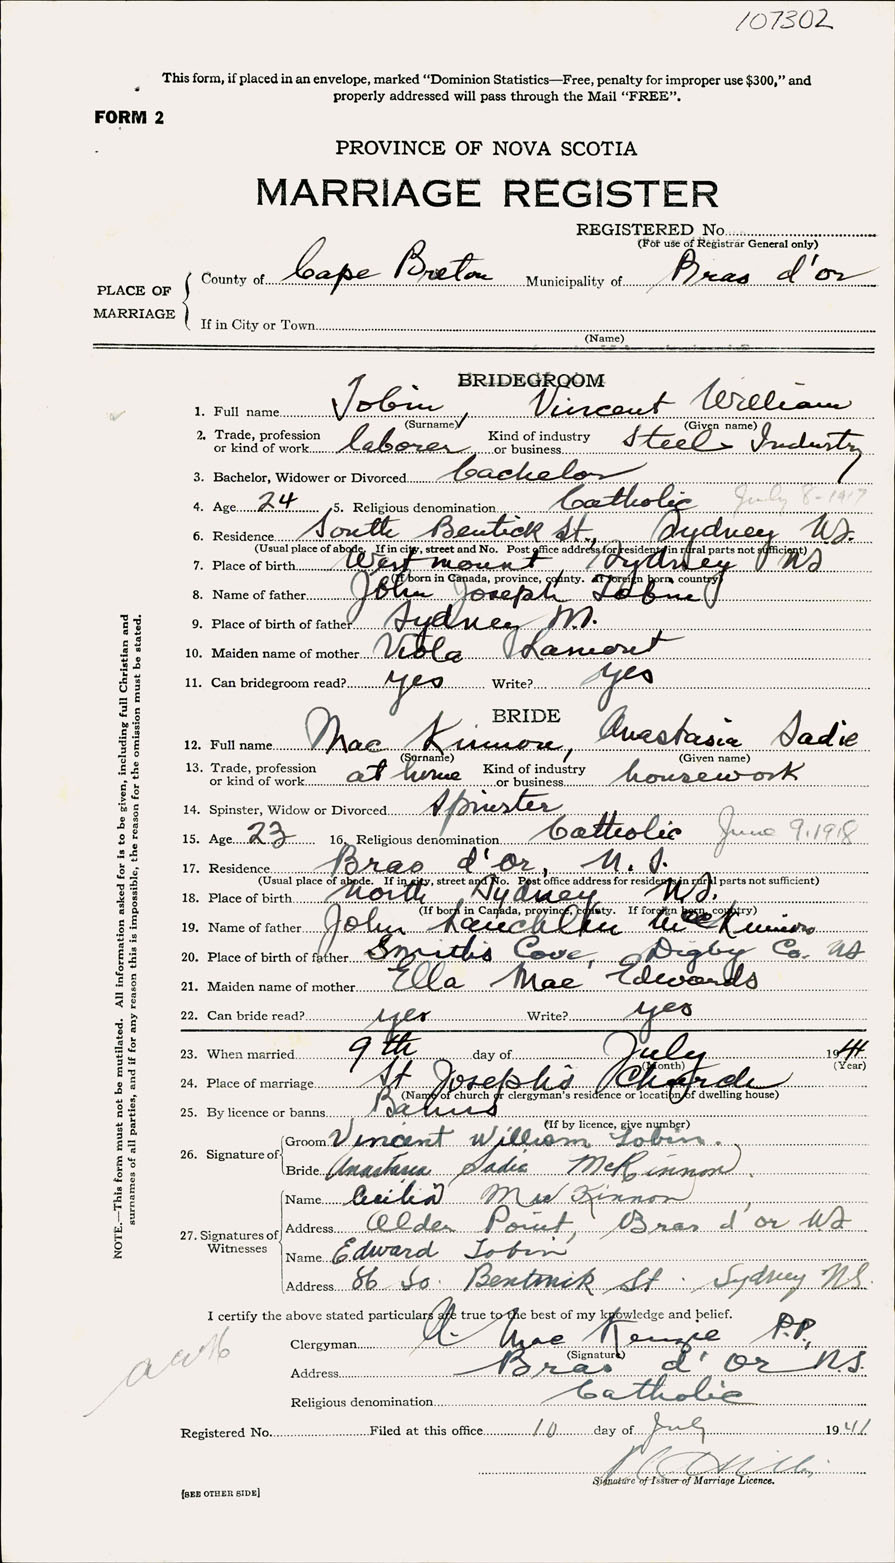 107302
This form, if placed in an envelope, marked “Dominion Statistics—Free, penalty for improper use $300,” and
properly addressed will pass through the Mail “FREE”.
FORM 2
PROVINCE OF NOVA SCOTIA
MARRIAGE REGISTER
REGISTERED No.
(For use of Registrar General only)
PLACE OF MARRIAGE
County of Cape Breton Municipality of Bras d'or
If in City or Town
(Name)
BRIDEGROOM
1. Full name Tobin, Vincent William
(Surname) (Given name)
2. Trade, profession or kind of work laborer Kind of industry or business Steel Industry
3. Bachelor, Widower or Divorced bachelor
4. Age 24 5. Religious denomination Catholic July 8-1917
6. Residence South Bentick St., Sydney N.S.
(Usual place of abode. If in city, street and No. Post office address for resident in rural parts not sufficient)
7. Place of birth Westmount, Sydney NS
(If born in Canada, province, county. If foreign born, country)
8. Name of father John Joseph Tobin
9. Place of birth of father Sydney N.S.
10. Maiden name of mother Viola Lamont
11. Can bridegroom read? yes Write? yes
BRIDE
12. Full name Mac Kinnon, Anastasia Sadie
(Surname) (Given name)
13. Trade, profession or kind of work at home Kind of industry or business housework
14. Spinster, Widow or Divorced Spinster
15. Age 23 16. Religious denomination Catholic June 9, 1918
17. Residence Bras d'or, N.S.
(Usual place of abode. If in city, street and No. Post office address for resident in rural parts not sufficient)
18. Place of birth North Sydney N.S.
(If born in Canada, province, county. If foreign born, country)
19. Name of father John Lauchlin MacKinnon
20. Place of birth of father Smith's Cove, Digby Co. NS
21. Maiden name of mother Ella Mae Edwards
22. Can bride read? yes Write? yes
23. When married 9th day of July 1941
(Month) (Year)
24. Place of marriage St Joseph's Church
(Name of church or clergyman's residence or location of dwelling house)
25. By licence or banns Banns
(If by licence, give number)
26. Signature of Groom Vincent William Tobin.
Bride Anastasia Sadie McKinnon.
27. Signatures of Witnesses
Name Cecilia MacKinnon
Address Alder Point, Bras d'or NS
Name Edward Tobin
Address 86 So. Bentinik St. Sydney N.S.
I certify the above stated particulars are true to the best of my knowledge and belief.
Clergyman A. Mac Kenzie P.P.
(Signature)
Address Bras d'Or N.S.
Religious denomination Catholic
Registered No. Filed at this office 10 day of July 1941
Signature of Issuer of Marriage Licence.
[SEE OTHER SIDE]
NOTE.—This form must not be mutilated. All information asked for is to be given, including full Christian and
surnames of all parties, and if for any reason this is impossible, the reason for the omission must be stated.